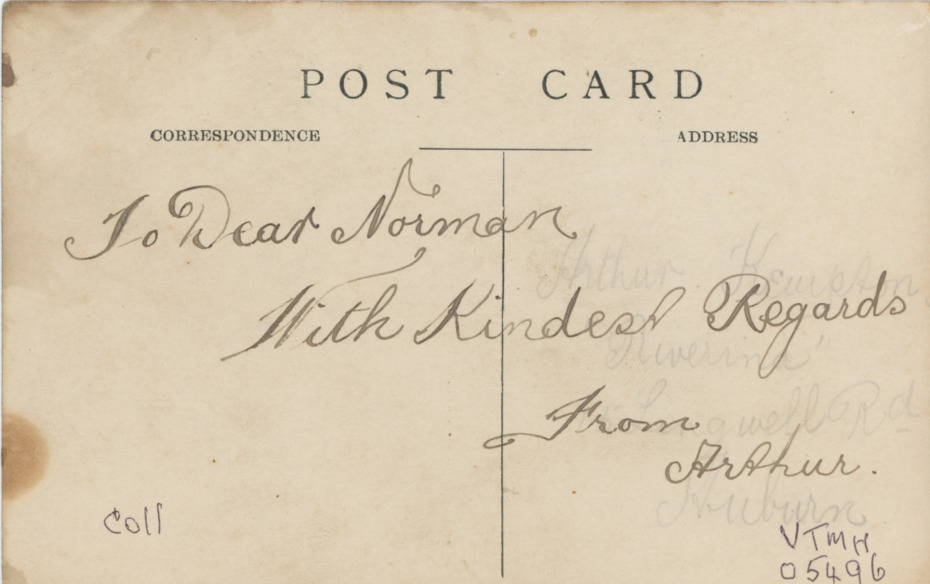 POST CARD
CORRESPONDENCE
ADDRESS
To Dear Norman
With Kindest Regards
From
Arthur.
Arthur Kempton
"Riverina"
Lingwell Rd
Auburn
Coll
VTMH
05496